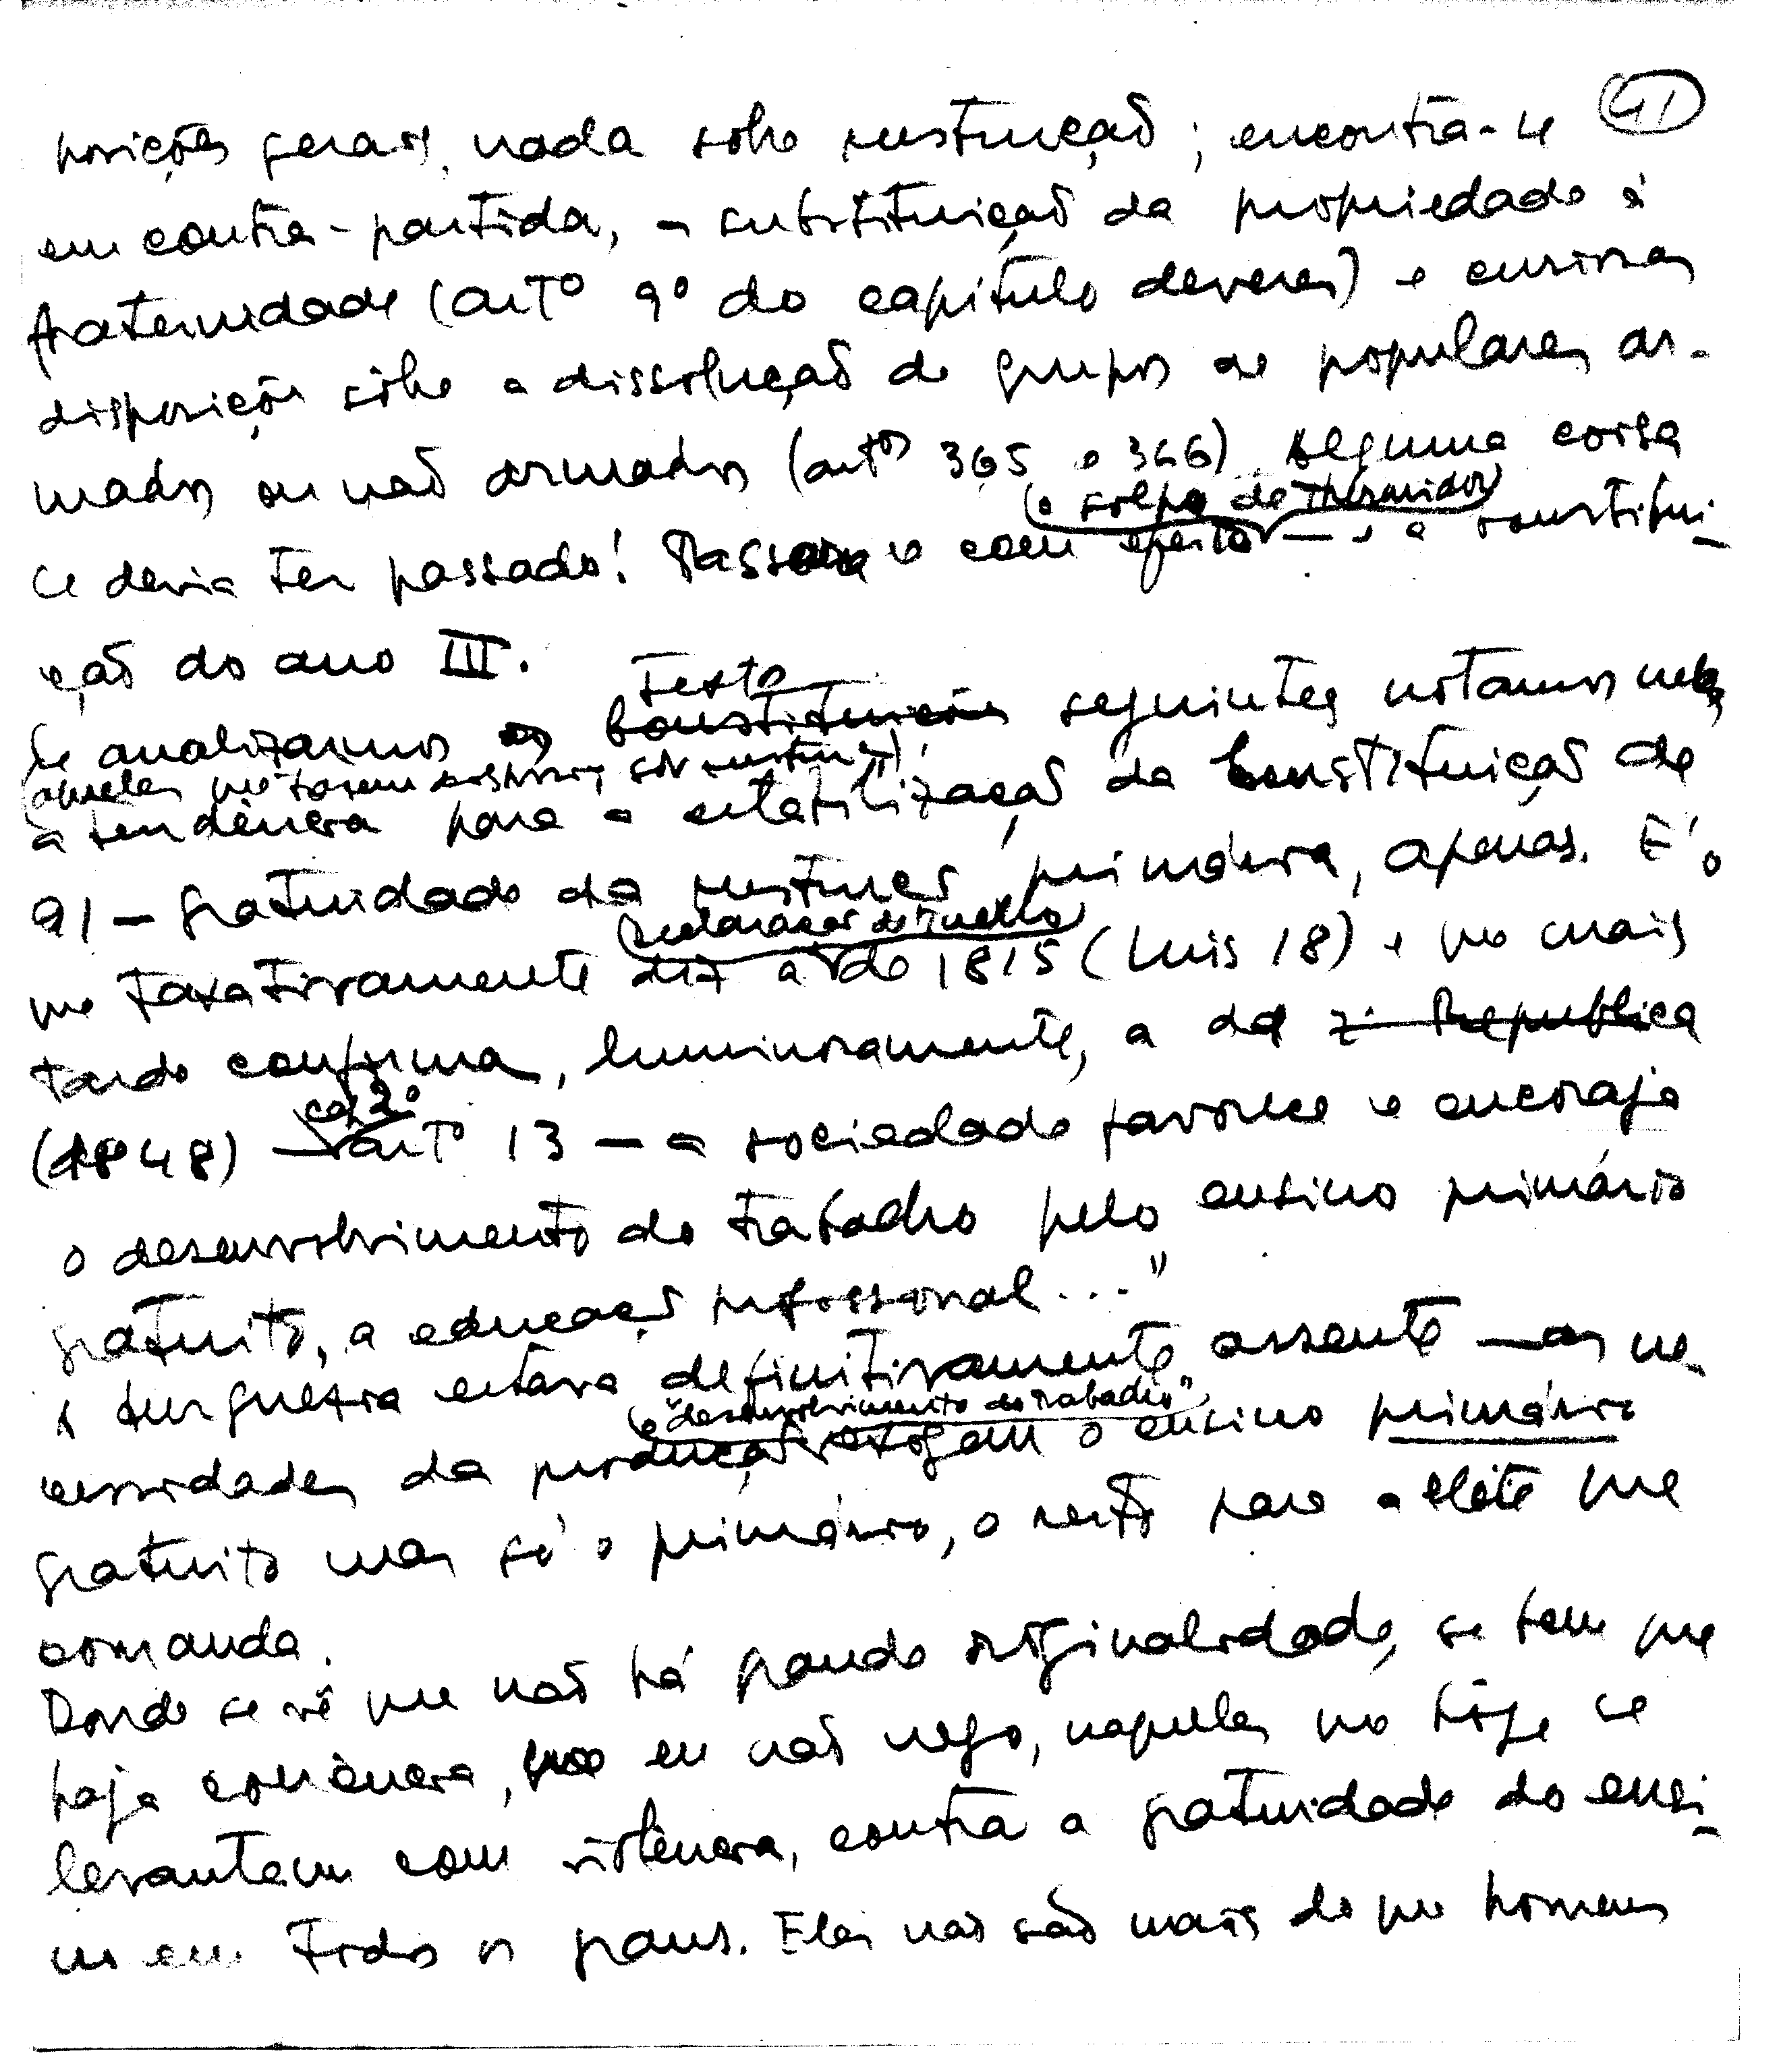 41
posições gerais, nada sôbre instrução; encontra-se
em contra-partida, a substituição da propriedade à
fraternidade (artº 9º do capítulo deveres) e curiosas
disposições sôbre a dissolução de grupos de populares ar-
mados ou não armados (artos 365 e 366). Alguma coisa
(o golpe do Thermidor)
se devia ter passado! Passou-se com efeito — e a constitui-
ção do ano III.
Texto
Se analizarmos as Constituições seguintes notamos nelas
(aquelas que fazem sôbre instrução)
a tendência para a estabilização da Constituição de
91 — gratuidade da instrução primária, apenas. É o
(declaração de direitos)
que taxativamente diz a de 1815 (Luis 18) e que mais
tarde confirma, luminosamente, a da 2ª Republica
cap 2º
(1848) — artº 13 — a sociedade favorece e encoraja
o desenvolvimento do trabalho pelo ensino primário
gratuito, a educação profissional..."
A burguesia estava definitivamente assente — as ne-
(o "desenvolvimento do trabalho")
cessidades da produção exigem o ensino primário
gratuito mas só o primário, o resto para a elite que
comanda.
Donde se vê que não há grande originalidade, se bem que
haja coerência, que eu não nego, naqueles que hoje se
levantem com violência, contra a gratuidade do ensi-
no em todos os graus. Eles não são mais do que homens